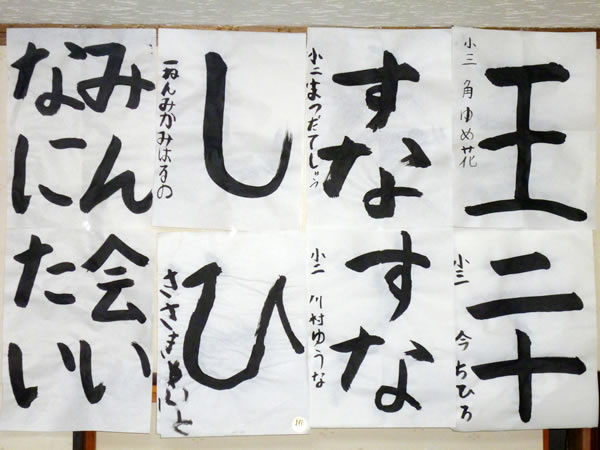 王
小三 角ゆめ花
すな
小二まつだてしゅう
し
一ねんみかみはるの
みん
なに
二十
小三 今ちひろ
すな
小二 川村ゆうな
ひ
会い
たい